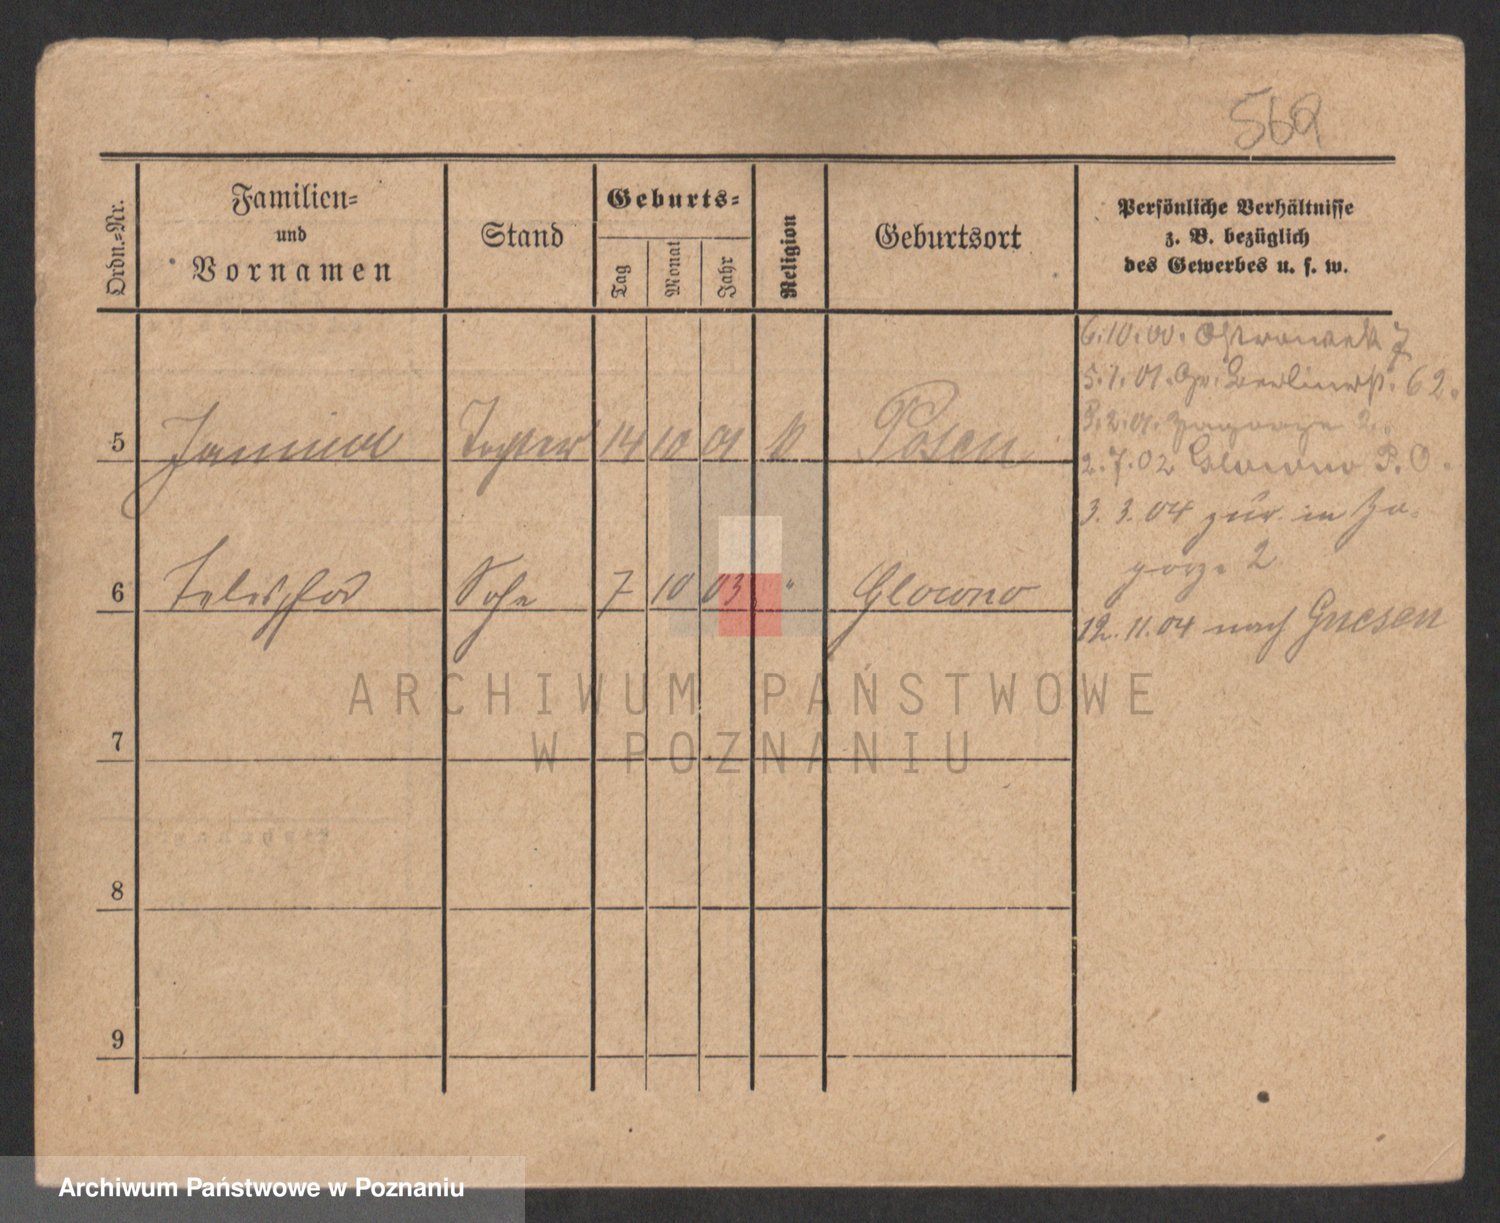 569
Ordn.-Nr.
Familien-
und
Vornamen
Stand
Geburts-
Tag
Monat
Jahr
Religion
Geburtsort
Persönliche Verhältnisse
z. B. bezüglich
des Gewerbes u. s. w.
6.10.00. Ostrowek 7
5.1.01. Gr. Berlinerst. 62.
3.2.01. Zagorze 2.
2.7.02 Glowno P. O.
5 Tochter 14 10 01 k Posen
3. 3. 04 zur. in Za-
gorze 2
6 Telesphor Sohn 7 10 03 " Glowno
12. 11. 04 nach Gnesen
ARCHIWUM PAŃSTWOWE
W POZNANIU
7
8
9
Archiwum Państwowe w Poznaniu